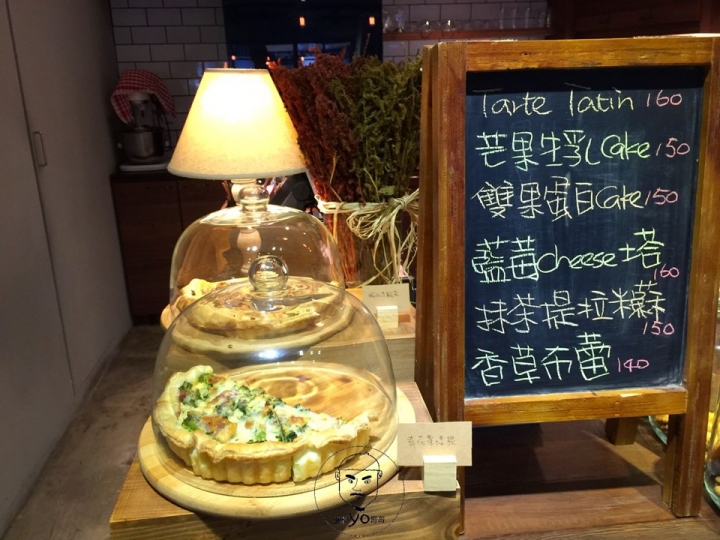 Tarte Tatin 160
芒果生乳Cake 150
雙果蛋白Cake 150
藍莓cheese塔 160
抹茶提拉米蘇 150
香草布蕾 140
yo